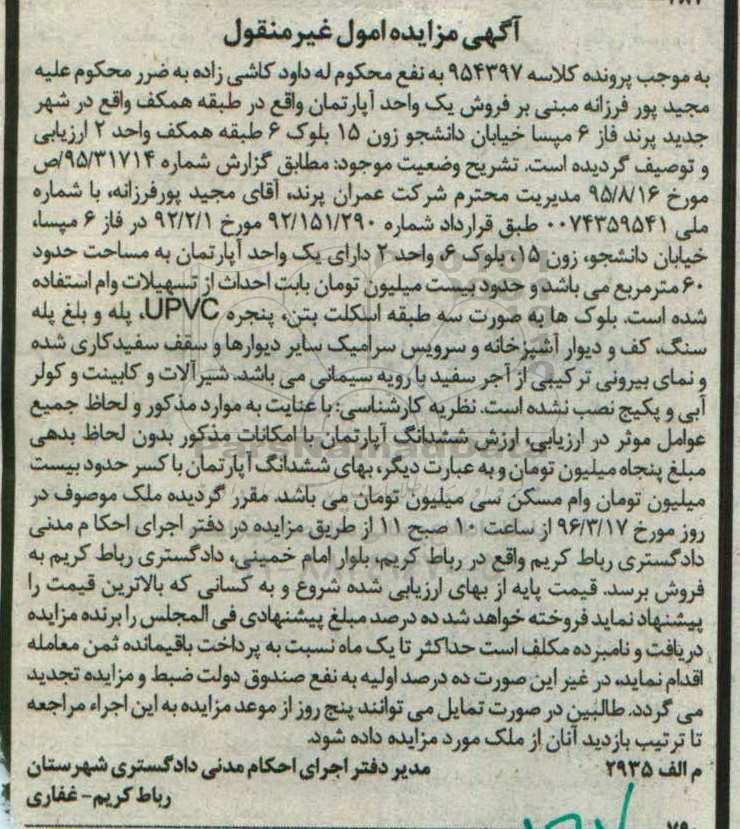 آگهی مزایده اموال غیرمنقول
به موجب پرونده کلاسه ۹۵۴۳۹۷ به نفع محکوم له داود کاشی زاده به ضرر محکوم علیه
مجید پور فرزانه مبنی بر فروش یک واحد آپارتمان واقع در طبقه همکف واقع در شهر
جدید پرند فاز ۶ مپسا خیابان دانشجو زون ۱۵ بلوک ۶ طبقه همکف واحد ۲ ارزیابی
و توصیف گردیده است. تشریح وضعیت موجود: مطابق گزارش شماره ۹۵/۳۱۷۱۴/ص
مورخ ۹۵/۸/۱۶ مدیریت محترم شرکت عمران پرند، آقای مجید پورفرزانه، با شماره
ملی ۰۰۷۴۳۵۹۵۴۱ طبق قرارداد شماره ۹۲/۱۵۱/۲۹۰ مورخ ۹۲/۲/۱ در فاز ۶ مپسا،
خیابان دانشجو، زون ۱۵، بلوک ۶، واحد ۲ دارای یک واحد آپارتمان به مساحت حدود
۶۰ مترمربع می باشد و حدود بیست میلیون تومان بابت احداث از تسهیلات وام استفاده
شده است. بلوک ها به صورت سه طبقه اسکلت بتن، پنجره UPVC، پله و بلغ پله
سنگ، کف و دیوار آشپزخانه و سرویس سرامیک سایر دیوارها و سقف سفیدکاری شده
و نمای بیرونی ترکیبی از آجر سفید با رویه سیمانی می باشد. شیرآلات و کابینت و کولر
آبی و پکیج نصب نشده است. نظریه کارشناسی: با عنایت به موارد مذکور و لحاظ جمیع
عوامل موثر در ارزیابی، ارزش ششدانگ آپارتمان با امکانات مذکور بدون لحاظ بدهی
مبلغ پنجاه میلیون تومان و به عبارت دیگر، بهای ششدانگ آپارتمان با کسر حدود بیست
میلیون تومان وام مسکن سی میلیون تومان می باشد. مقرر گردیده ملک موصوف در
روز مورخ ۹۶/۳/۱۷ از ساعت ۱۰ صبح ۱۱ از طریق مزایده در دفتر اجرای احکا م مدنی
دادگستری رباط کریم واقع در رباط کریم، بلوار امام خمینی، دادگستری رباط کریم به
فروش برسد. قیمت پایه از بهای ارزیابی شده شروع و به کسانی که بالاترین قیمت را
پیشنهاد نماید فروخته خواهد شد ده درصد مبلغ پیشنهادی فی المجلس را برنده مزایده
دریافت و نامبرده مکلف است حداکثر تا یک ماه نسبت به پرداخت باقیمانده ثمن معامله
اقدام نماید، در غیر این صورت ده درصد اولیه به نفع صندوق دولت ضبط و مزایده تجدید
می گردد. طالبین در صورت تمایل می توانند پنج روز از موعد مزایده به این اجراء مراجعه
تا ترتیب بازدید آنان از ملک مورد مزایده داده شود.
م الف ۲۹۳۵ مدیر دفتر اجرای احکام مدنی دادگستری شهرستان
رباط کریم- غفاری